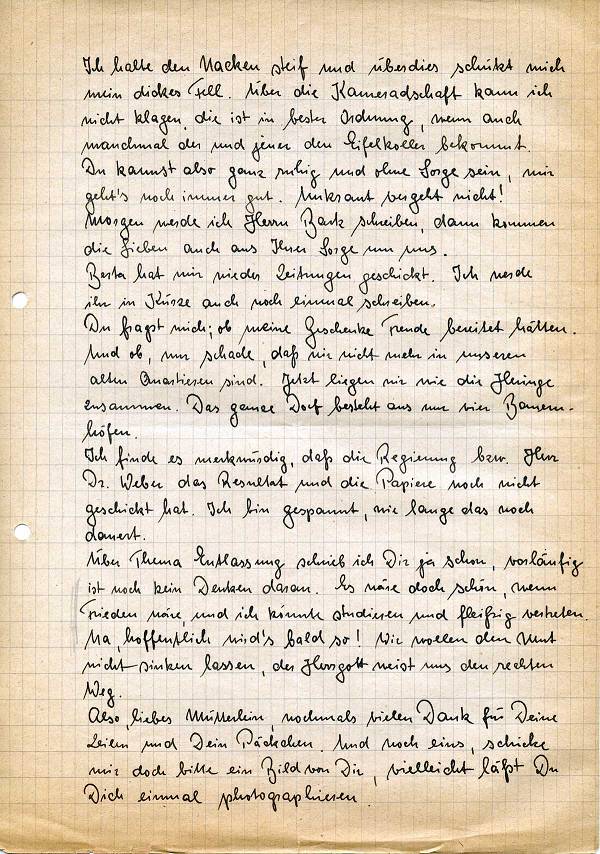 Ich halte den Nacken steif und überdies schützt mich
mein dickes Fell. Über die Kameradschaft kann ich
nicht klagen, die ist in bester Ordnung, wenn auch
manchmal der und jener den Eifelkoller bekommt.
Du kannst also ganz ruhig und ohne Sorge sein, mir
geht's noch immer gut. Unkraut vergeht nicht!
Morgen werde ich Herrn Bark schreiben, dann kommen
die Lieben auch aus Ihrer Sorge um uns.
Berta hat mir wieder Zeitungen geschickt. Ich werde
ihr in Kürze auch noch einmal schreiben.
Du fragst mich, ob meine Geschenke Freude bereitet hätten.
Und ob, nur schade, daß wir nicht mehr in unseren
alten Quartieren sind. Jetzt liegen wir wie die Heringe
zusammen. Das ganze Dorf besteht aus nur vier Bauern-
höfen.
Ich finde es merkwürdig, daß die Regierung bzw. Herr
Dr. Weber das Resultat und die Papiere noch nicht
geschickt hat. Ich bin gespannt, wie lange das noch
dauert.
Über Thema Entlassung schrieb ich Dir ja schon, vorläufig
ist noch kein Denken daran. Es wäre doch schön, wenn
Frieden wäre, und ich könnte studieren und fleißig vertreten.
Na, hoffentlich wird's bald so! Wir wollen den Mut
nicht sinken lassen, der Herrgott weist uns den rechten
Weg.
Also, liebes Mütterlein, nochmals vielen Dank für Deine
Zeilen und Dein Päckchen. Und noch eins, schicke
mir doch bitte ein Bild von Dir, vielleicht läßt Du
Dich einmal photographieren.